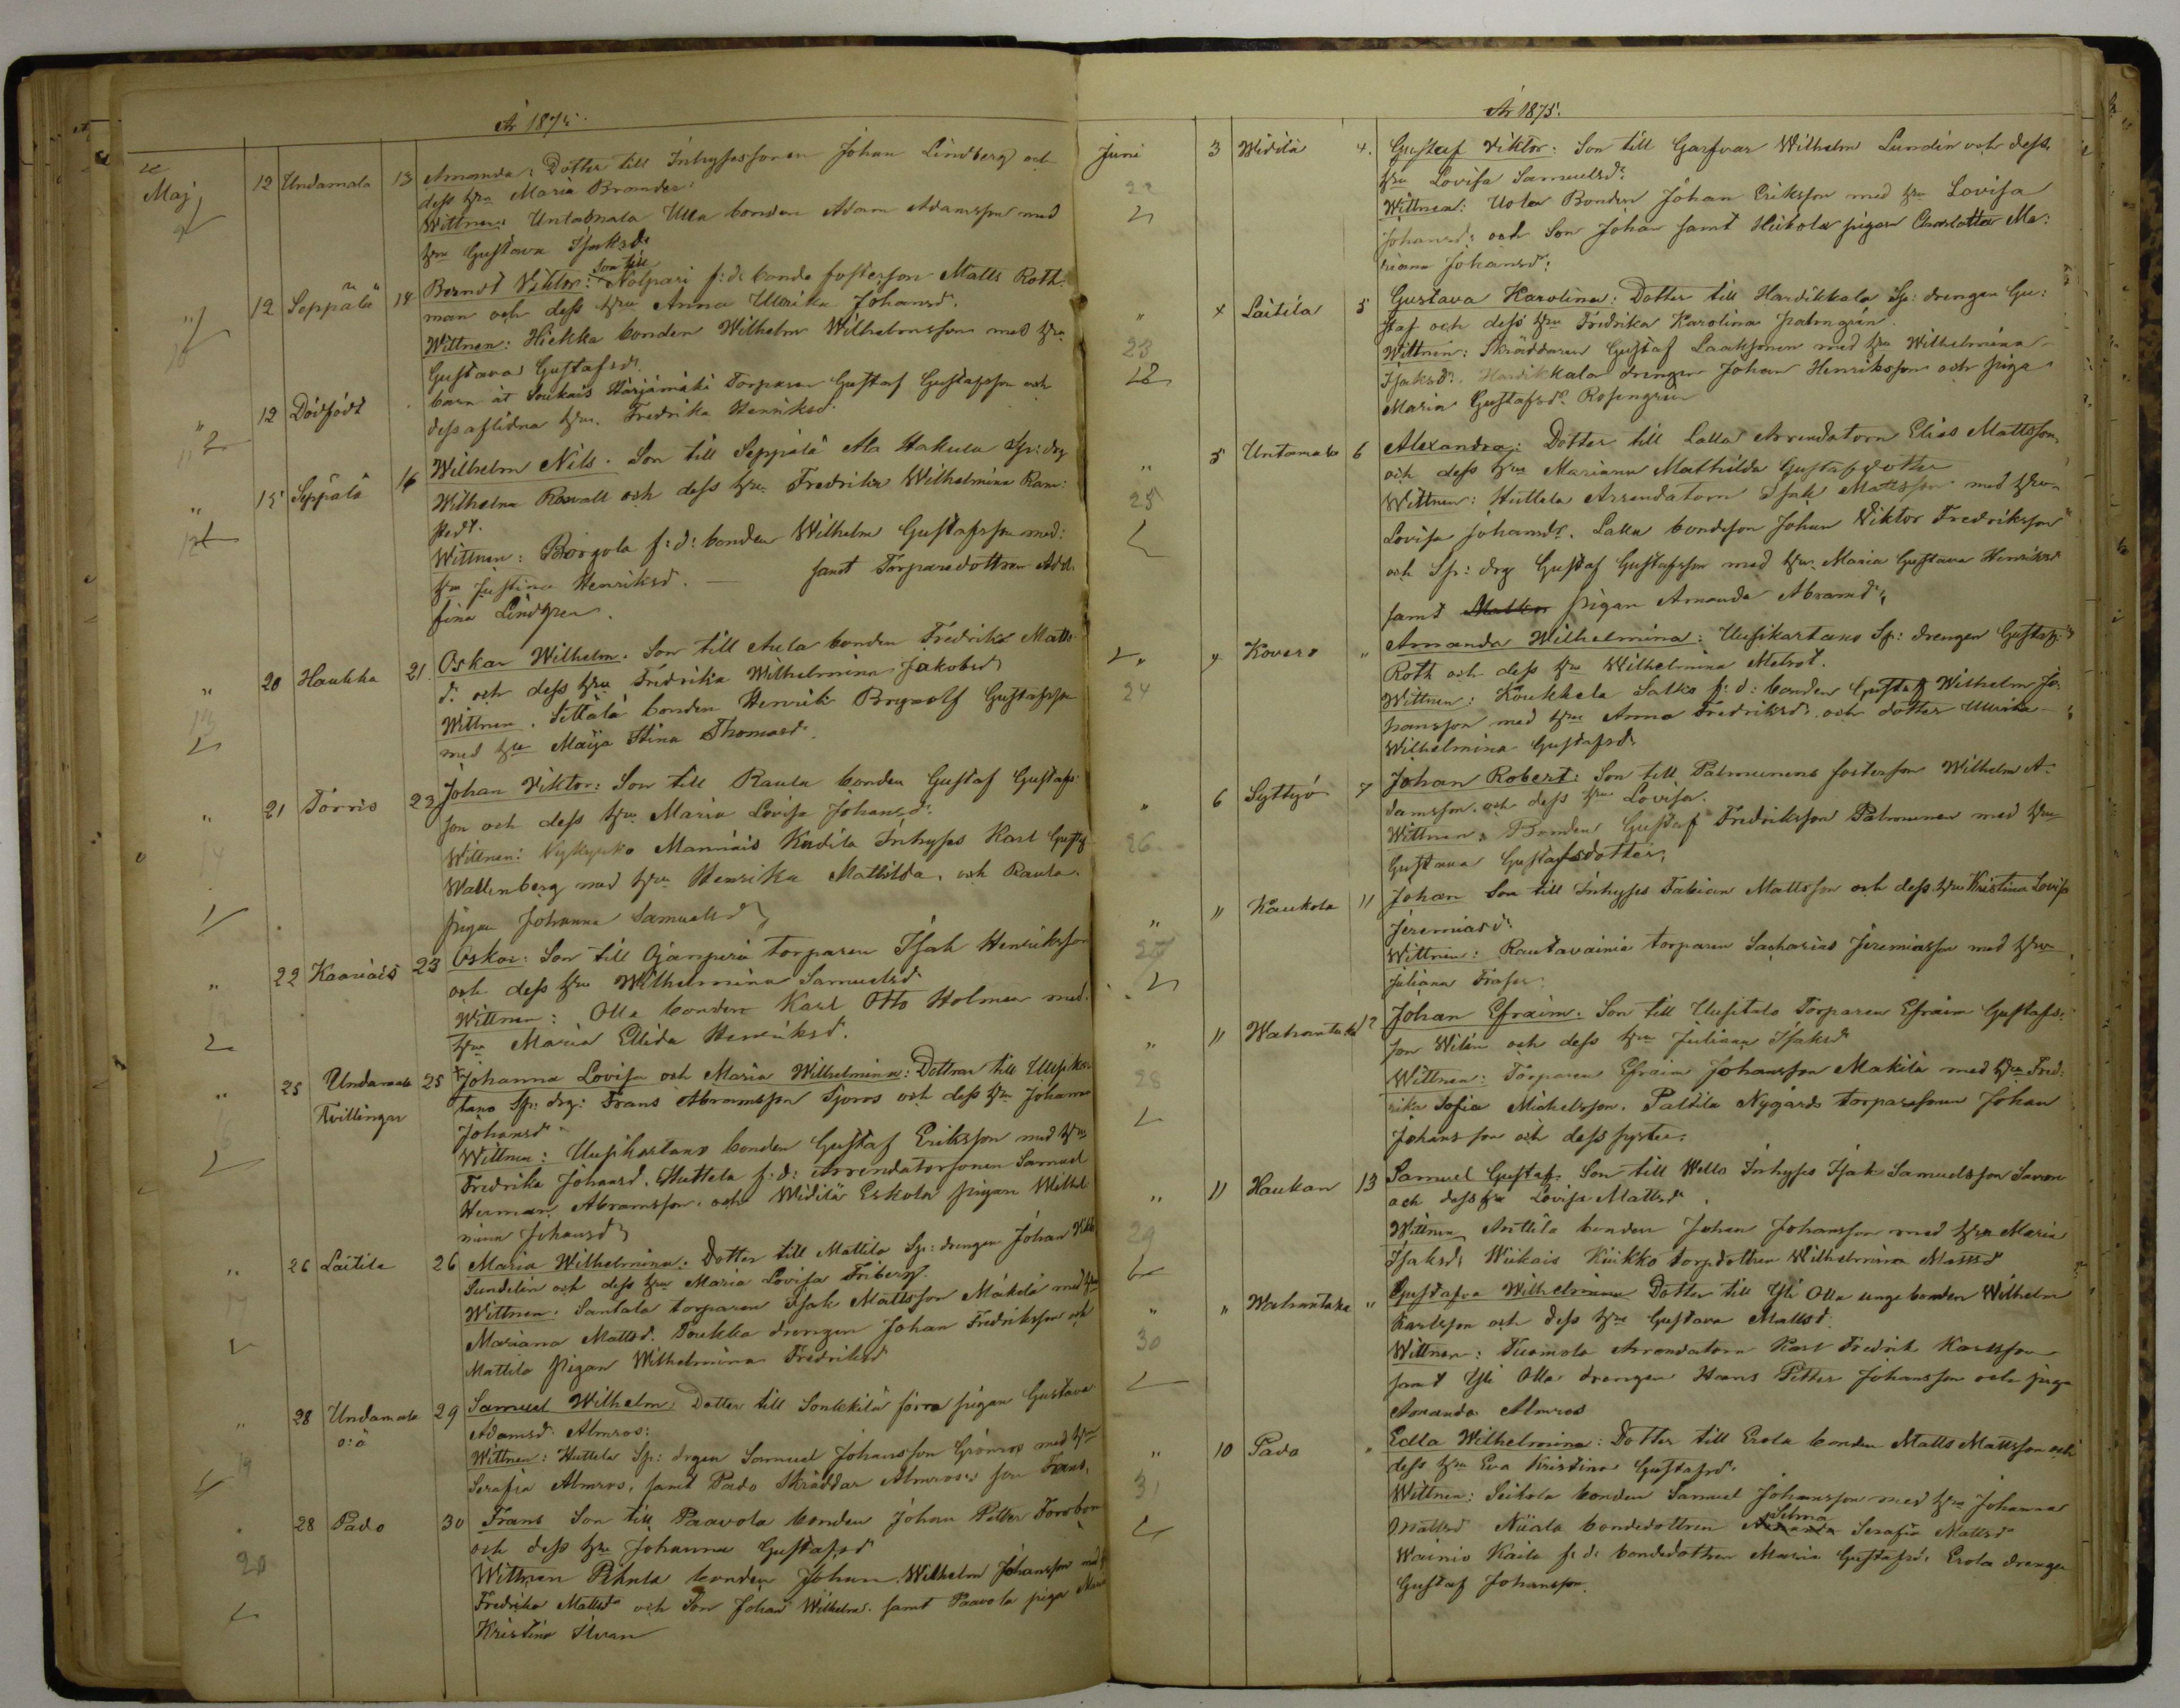 År 1875.
Maj 12 Undamala 13 Amanda: Dotter till Inhysessonen Johan Lindberg och
dess hru Maria Brander:
Wittnen: Untamala Ulla bonden Adam Adamsson med
hru Gustava Isaksd.
" 12 Seppälä 14 Berndt Viktor: son till Nolpari f:d: bonde fosterson Matts Roth-
man och dess hru Anna Ulrika Johansd.
Wittnen: Hiekka bonden Wilhelm Wilhelmsson med hru
Gustava Gustafsd.
" 12 Dödfödt barn åt Soukais Harjamäki Torparen Gustaf Gustafsson och
dess aflidna hru Fredrika Henriksd.
" 15 Seppälä 16 Wilhelm Nils. Son till Seppälä Ala Hakula Sp: drg
Wilhelm Roswall och dess hru Fredrika Wilhelmina Ram:
stedt.
Wittnen: Borgola f:d: bonden Wilhelm Gustafsson med:
hru Justina Henriksd. — samt Torparedottren Adol
fina Lindgren.
" 20 Haukka 21. Oskar Wilhelm. Son till Aula bonden Fredrik Matts
d. och dess hru Fredrika Wilhelmina Jakobsd
Wittnen. Sillälä bonden Henrik Brynolf Gustafsson
med hru Maija Stina Thomasd.
" 21 Torris 22 Johan Viktor: Son till Raula bonden Gustaf Gustafs
son och dess hru Maria Lovisa Johansd.
Wittnen: Manniais Kudila Inhyses Karl Gustaf
Wallenberg med hru Henrika Mathilda, och Raula
pigan Johanna Samuelsd
" 22 Kaariais 23 Oskar: Son till Ojanperä torparen Isak Henriksson
och dess hru Wilhelmina Samuelsd
Wittnen: Olla bonden Karl Otto Holmen med
hru Maria Elida Henriksd.
" 25 Undamala 25 Johanna Lovisa och Maria Wilhelmina: Dottrar till Uusikar
Tvillingar tano Sp: drg: Frans Abramsson Sjoros och dess hru Johanna
Johansd
Wittnen: Uusikartano bonden Gustaf Eriksson med hru
Fredrika Johansd. Huttela f:d: Arrendatorsonen Samuel
Herman Abramsson, och Widilä Eskola pigan Wilhel
mina Johansd
" 26 Laitila 26 Maria Wilhelmina: Dotter till Mattila Sp: drengen Johan
Sundelin och dess hru Maria Lovisa Friberg.
Wittnen. Santala torparen Isak Mattsson Mäkilä med hru
Mariana Mattsd. Toukka drengen Johan Fredriksson och
Mattila pigan Wilhelmina Fredriksd
" 28 Undamala 29 Samuel Wilhelm: Dotter till Sonkkila förra pigan Gustava
o:ä Adamsd. Almros:
Wittnen: Huttela Sp: drgen Samuel Johansson Grönros med hru
Serafia Almros, samt Pado Skräddar Almroses son Frans,
28 Pado 30 Frans Son till Paavola bonden Johan Petter
och dess hru Johanna Gustafsd
Wittnen Pihula bonden Johan Wilhelm Johansson med
Fredrika Mattsd och Son Johan Wilhelm. samt Paavola piga Maria
Kristina
År 1875.
Juni 3 Widilä 4. Gustaf Viktor: Son till Garfvar Wilhelm Lundin och dess
hru Lovisa Samuelsd.
Wittnen: Uola Bonden Johan Eriksson med hru Lovisa
Johansd. och Son Johan samt Heikola pigan Charlotta Ma:
riana Johansd:
" 4 Laitila 5 Gustava Karolina: Dotter till Hardikkala Sp: drengen Gu:
staf och dess hru Fredrika Karolina Palmgrén.
Wittnen: Skräddaren Gustaf Laaksonen med hru Wilhelmina
Isaksd. Hardikkala drengen Johan Henriksson och piga
Maria Gustafsd. Rosengren
" 5 Untamala 6 Alexandra: Dotter till Lalla Arrendatorn Elias Mattsson
och dess hru Mariana Mathilda Gustafsdotter
Wittnen: Huttela Arrendatorn Isak Mattsson med hru
Lovisa Johansd. Lalla bondeson Johan Viktor Fredriksson
och Sp: drg Gustaf Gustafsson med hru Maria Gustava Henriksd
samt pigan Amanda Abramsd.
" 7 Kovero " Amanda Wilhelmina: Uusikartano Sp: drengen Gustaf
Roth och dess hru Wilhelmina
Wittnen: Koukkela Salko f:d: bonden Gustaf Wilhelm Jo:
hansson med hru Anna Fredriksd. och dotter Ulrika
Wilhelmina Gustafsd.
" 6 Syttyö 7 Johan Robert: Son till Palmunens fosterson Wilhelm A-
damsson. och dess hru Lovisa.
Wittnen: Bonden Gustaf Fredriksson Palmunen med hru
Gustava Gustafsdotter.
" 11 Kaukola 11 Johan Son till Inhyses Fabian Mattsson och dess hru Kristina Lovisa
Jeremiasd.
Wittnen: Rautavainia torparen Sacharias Jeremiasson med hru
Juliana
" 11 Wahantaka 12 Johan Efraim. Son till Uusitalo Torparen Efraim Gustafs:
son Wilén och dess hru Juliana Isaksd
Wittnen: Torparen Efraim Johansson Makilä med hru Fred:
rika Sofia Michelsson. Paltila Nygårds torparesonen Johan
Johansson och dess syster.
" 11 Haukan 13 Samuel Gustaf. Son till Wella Inhyses Isak Samuelsson
och dess hru Lovisa Mattsd.
Wittnen Anttila bonden Johan Johansson med hru Maria
Isaksd. Wiikais Kiikko torpdottren Wilhelmina Mattsd
" " Wahantaka " Gustafva Wilhelmina Dotter till Yli Olla unge bonden Wilhelm
Karlsson och dess hru Gustava Mattsd.
Wittnen: Tuomola Arrendatorn Karl Fredrik Karlsson
samt Yli Olla drengen Hans Petter Johansson och piga
Amanda Almros
" 10 Pado " Edla Wilhelmina: Dotter till Erola bonden Matts Mattsson och
dess hru Eva Kristina Gustafsd.
Wittnen: Seikola bonden Samuel Johansson med hru Johanna
Mattsd Niiala bondedottren Selma Serafia Mattsd
Wainio Kaila f:d: bondedottren Maria Gustafsd. Erola drengen
Gustaf Johansson.